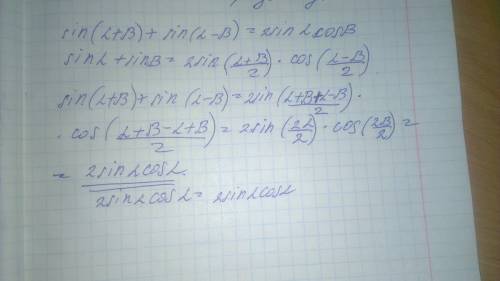 sin(α+B)+sin(α-B)=2sinαcosB
sinα+sinB=2sin(α+B/2)·cos(α-B/2)
sin(α+B)+sin(α-B)=2sin(α+B+α-B/2)·
·cos(α+B-α+B/2)=2sin(2α/2)·cos(2B/2)=
=2sinαcosα.
2sinαcosα=2sinαcosα